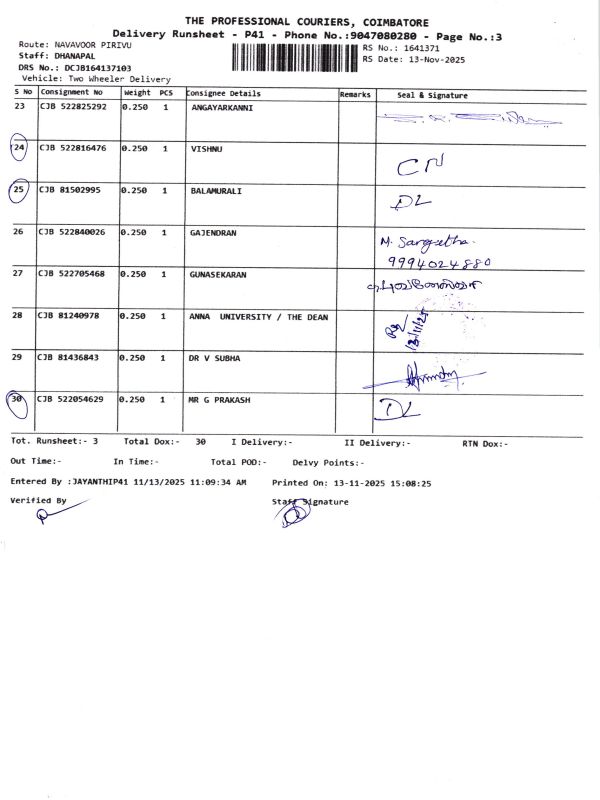 THE PROFESSIONAL COURIERS, COIMBATORE
Delivery Runsheet - P41 - Phone No.:9047080280 - Page No.:3
Route: NAVAVOOR PIRIVU RS No.: 1641371
Staff: DHANAPAL RS Date: 13-Nov-2025
DRS No.: DCJB164137103
Vehicle: Two Wheeler Delivery
S No Consignment No Weight PCS Consignee Details Remarks Seal & Signature
23 CJB 522825292 0.250 1 ANGAYARKANNI
24 CJB 522816476 0.250 1 VISHNU CN
25 CJB 81502995 0.250 1 BALAMURALI DL
26 CJB 522840026 0.250 1 GAJENDRAN M. Sangeetha.
9994024880
27 CJB 522705468 0.250 1 GUNASEKARAN
28 CJB 81240978 0.250 1 ANNA UNIVERSITY / THE DEAN 13/11/25
29 CJB 81436843 0.250 1 DR V SUBHA
30 CJB 522054629 0.250 1 MR G PRAKASH DL
Tot. Runsheet:- 3 Total Dox:- 30 I Delivery:- II Delivery:- RTN Dox:-
Out Time:- In Time:- Total POD:- Delvy Points:-
Entered By :JAYANTHIP41 11/13/2025 11:09:34 AM Printed On: 13-11-2025 15:08:25
Verified By Staff Signature